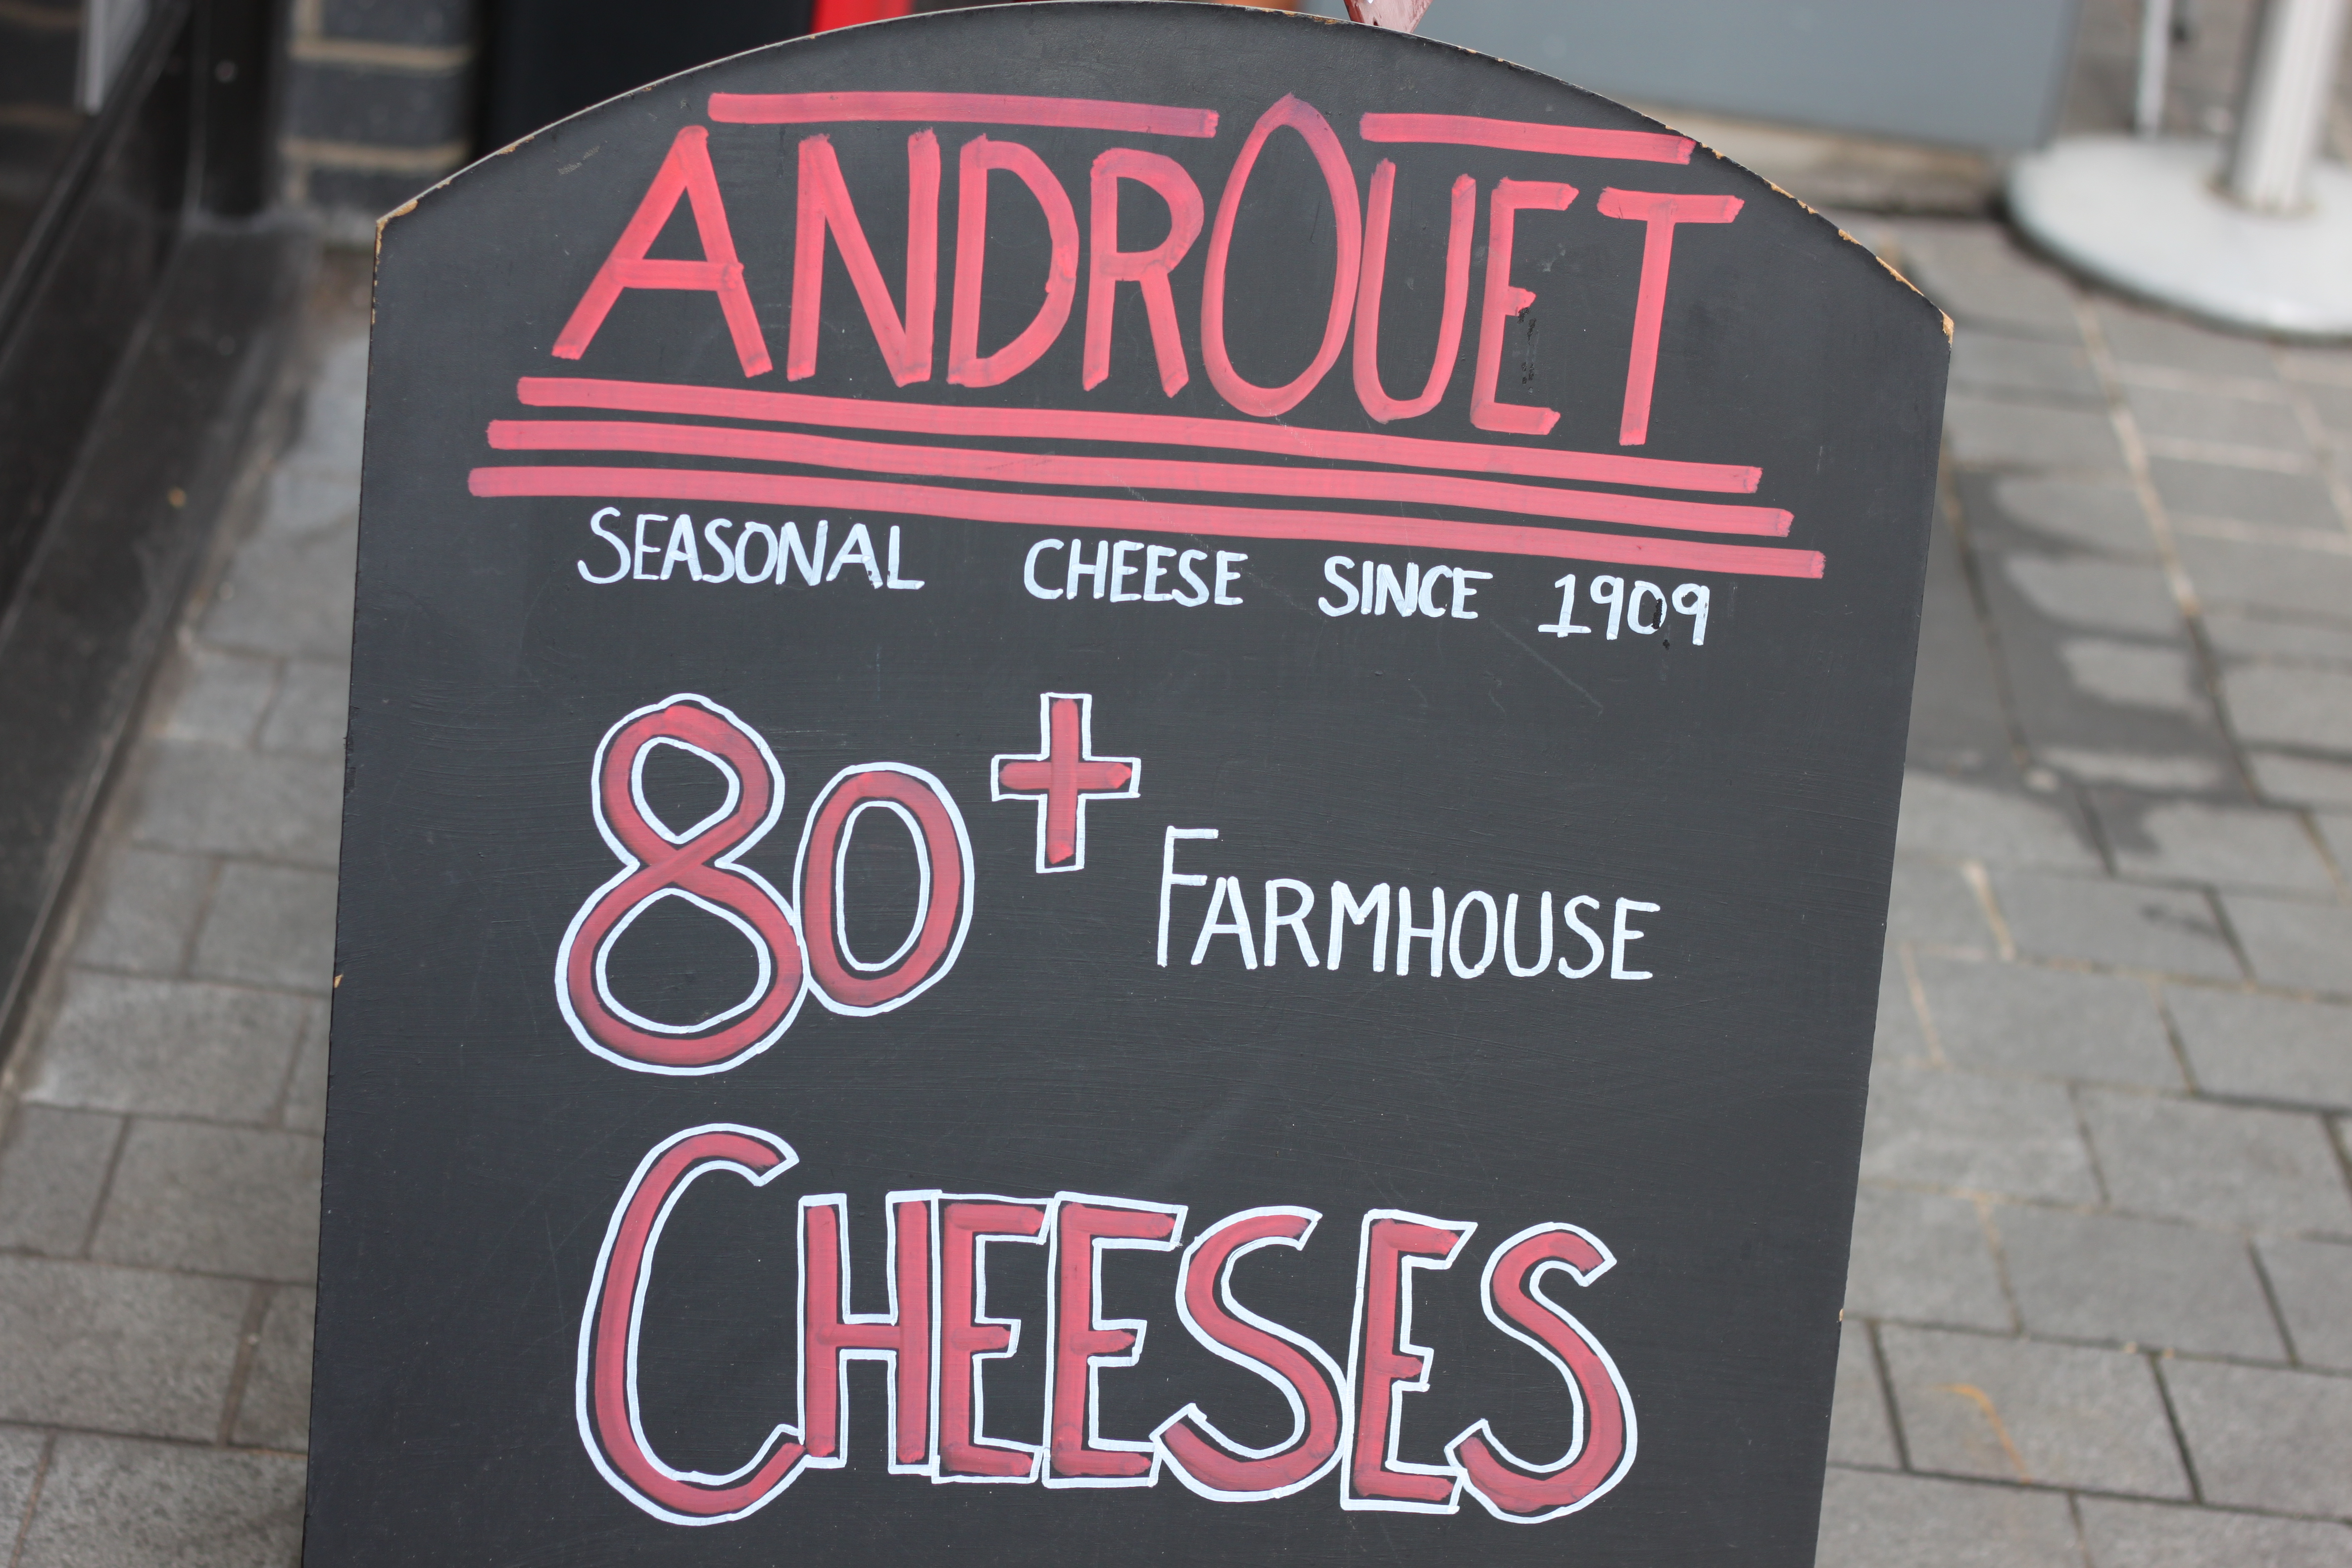 ANDROUET
SEASONAL CHEESE SINCE 1909
80+ FARMHOUSE
CHEESES